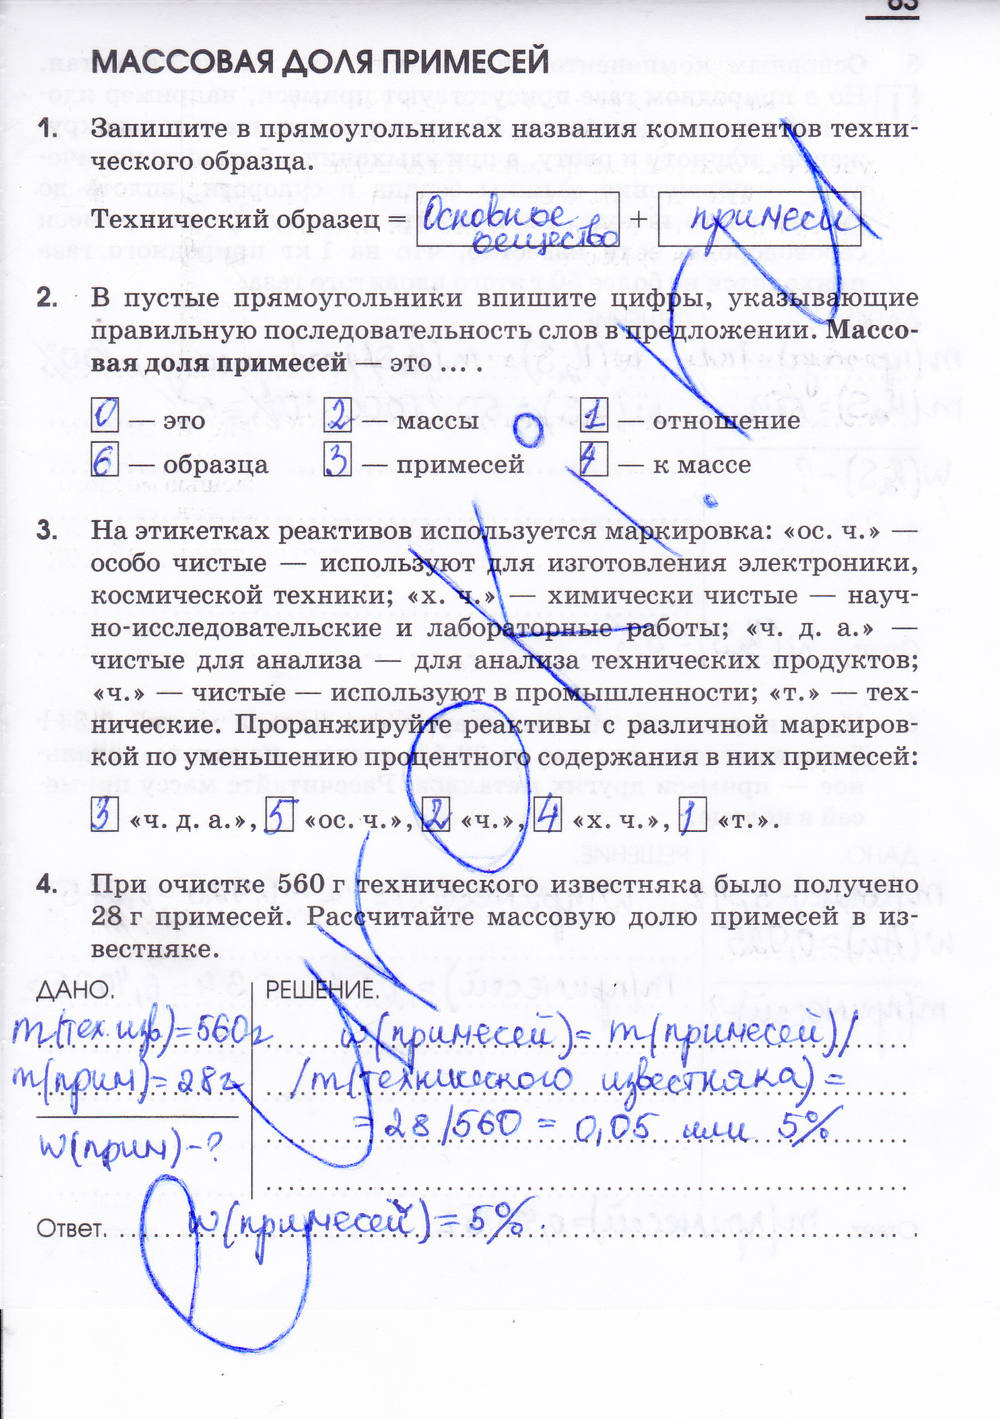 МАССОВАЯ ДОЛЯ ПРИМЕСЕЙ
1. Запишите в прямоугольниках названия компонентов техни-
ческого образца.
Технический образец = Основное вещество + примеси
2. В пустые прямоугольники впишите цифры, указывающие
правильную последовательность слов в предложении. Массо-
вая доля примесей — это ... .
0 — это 2 — массы 1 — отношение
6 — образца 3 — примесей 4 — к массе
3. На этикетках реактивов используется маркировка: «ос. ч.» —
особо чистые — используют для изготовления электроники,
космической техники; «х. ч.» — химически чистые — науч-
но-исследовательские и лабораторные работы; «ч. д. а.» —
чистые для анализа — для анализа технических продуктов;
«ч.» — чистые — используют в промышленности; «т.» — тех-
нические. Проранжируйте реактивы с различной маркиров
кой по уменьшению процентного содержания в них примесей:
3 «ч. д. а.», 5 «ос. ч.», 2 «ч.», 4 «х. ч.», 1 «т.».
4. При очистке 560 г технического известняка было получено
28 г примесей. Рассчитайте массовую долю примесей в из-
вестняке.
ДАНО. РЕШЕНИЕ.
m(тех. изв)=560г w(примесей)= m(примесей)/
m(прим)=28г /m(технического известняка)=
= 28/560 = 0,05 или 5%
w(прим)-?
Ответ. w(примесей)=5%.